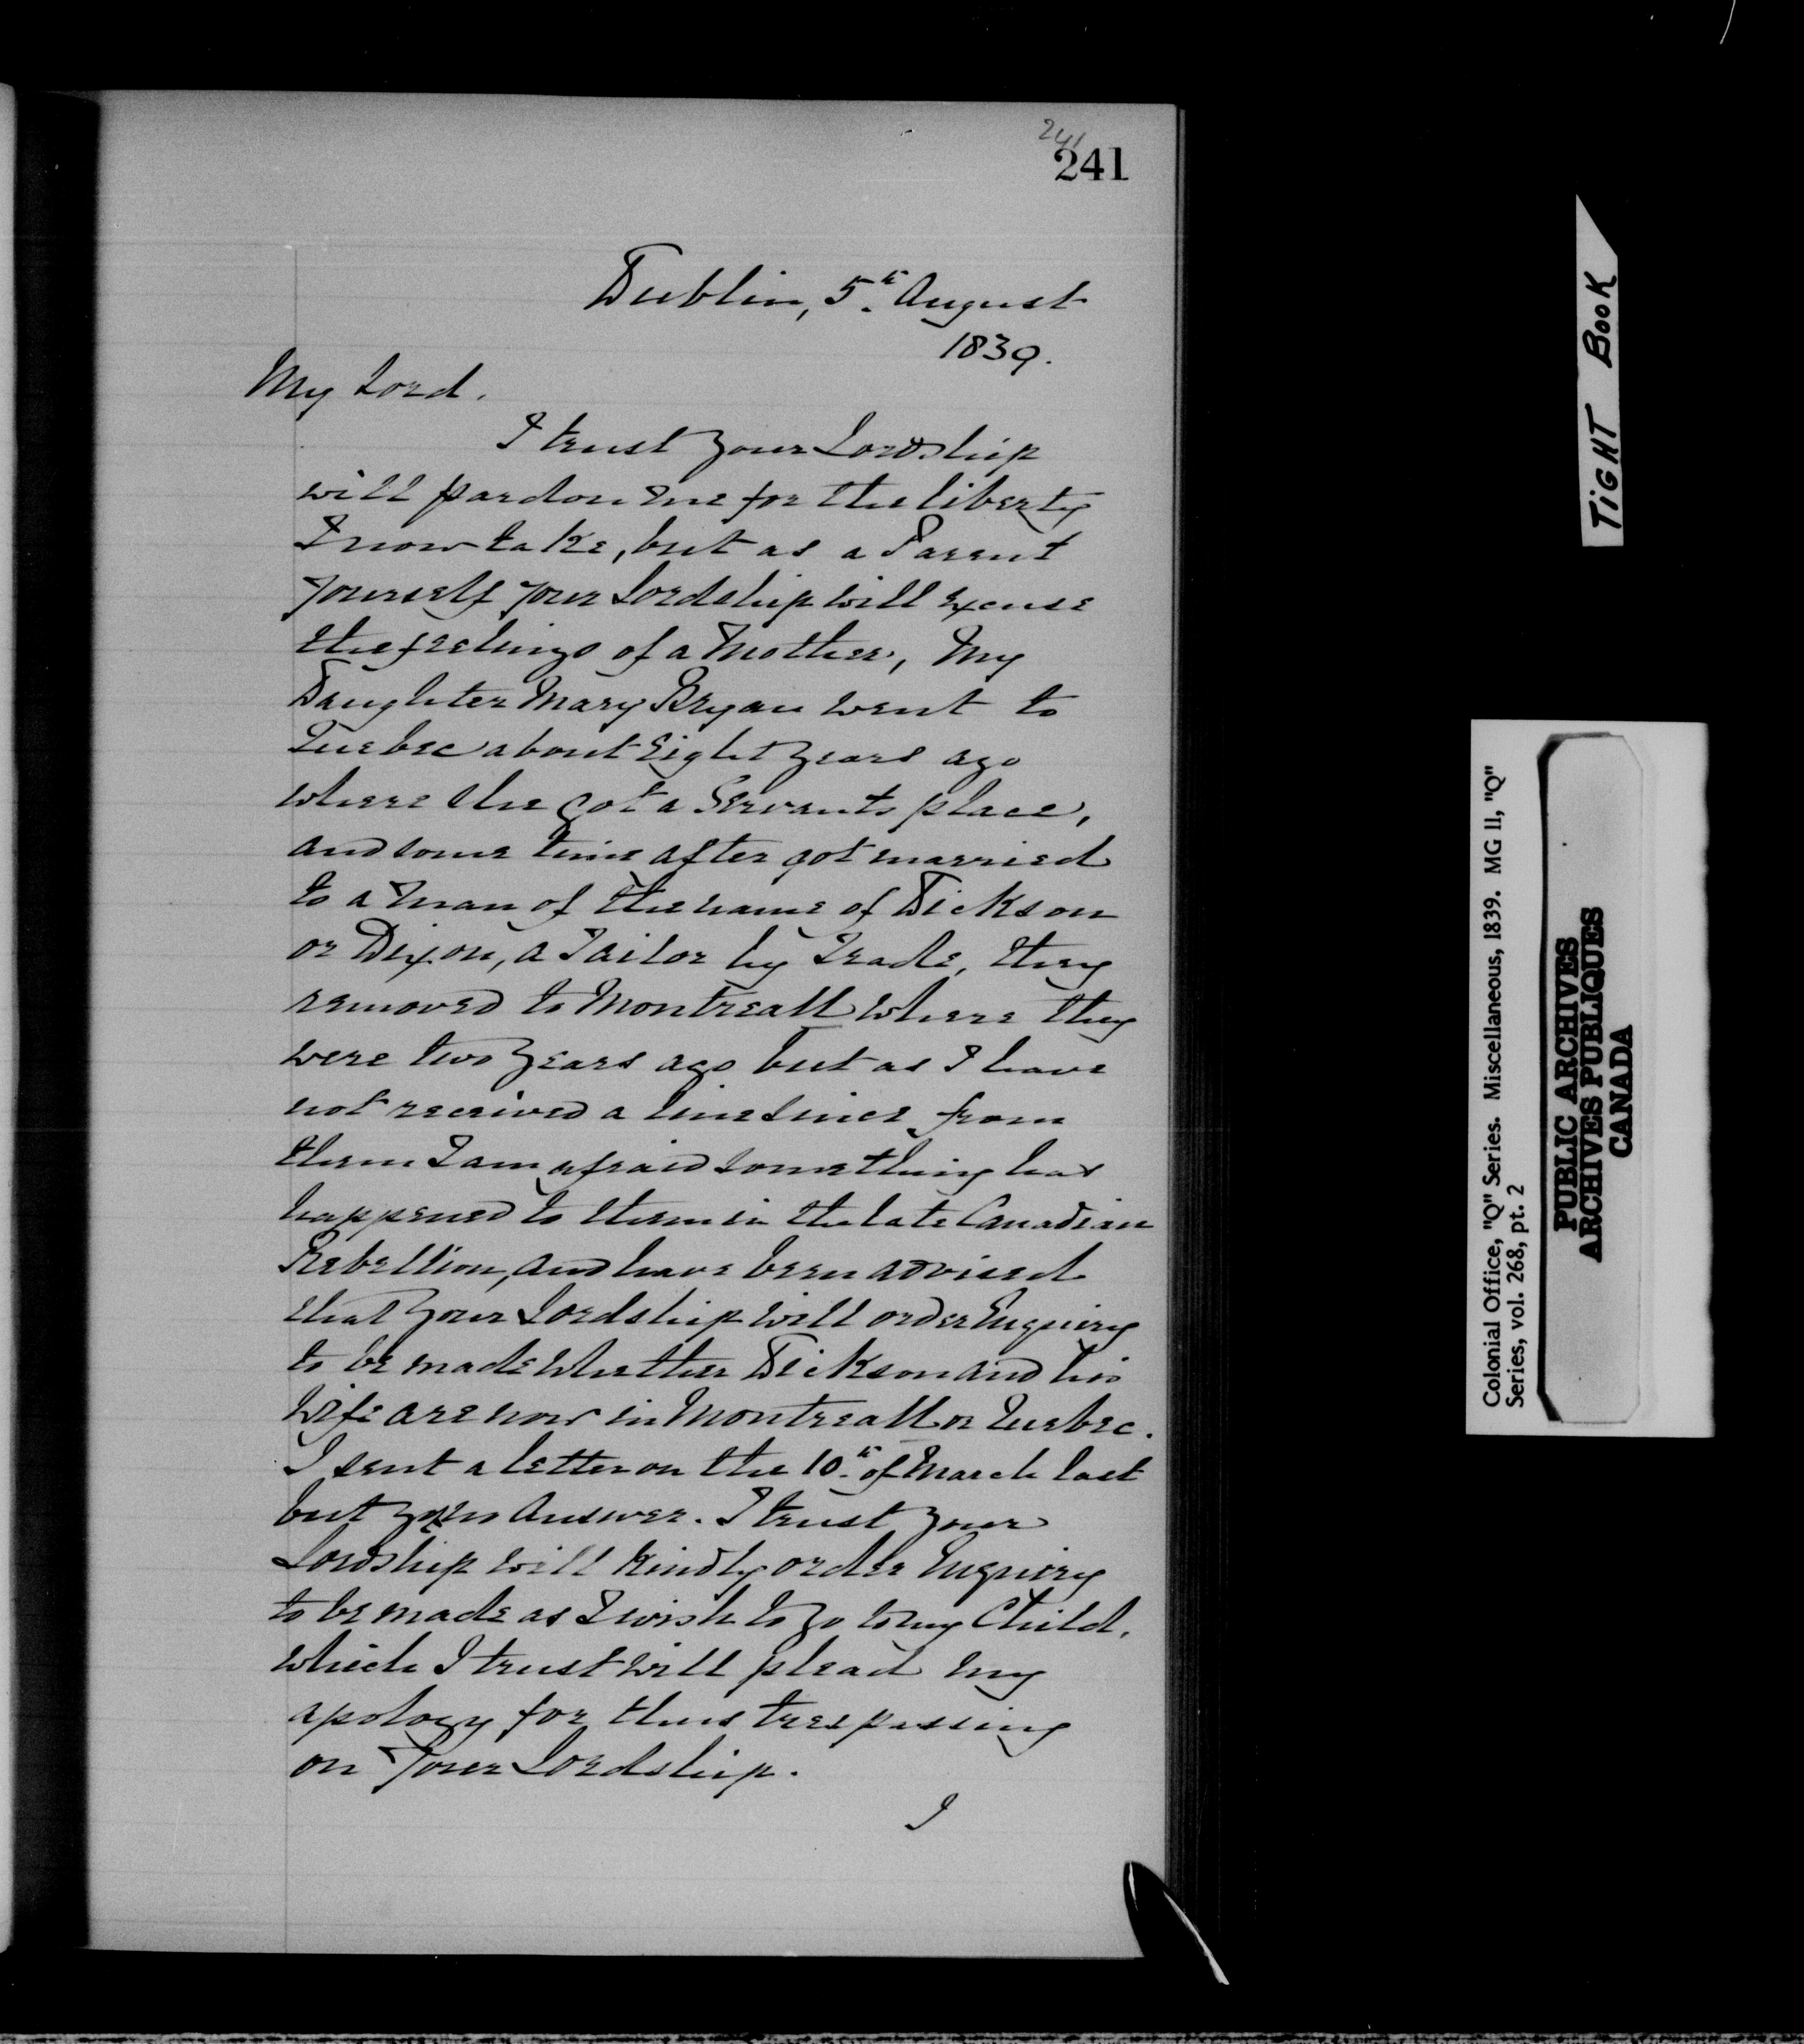 241
241
Dublin, 5th August
1839.
My Lord.
I trust your Lordship
will pardon me for the liberty
I now take, but as a Parent
yourself your Lordship will excuse
the feelings of a Mother, My
Daughter Mary Bryan went to
Quebec about Eight years ago
where she got a Servants place,
and some time after got married
to a Man of the name of Dickson
or Dixon, a Tailor by Trade, they
removed to Montreall where they
were two years ago but as I have
not received a line since from
them I am afraid something has
happened to them in the late Canadian
Rebellion, and have been advised
that your Lordship will order Enquiry
to be made whether Dickson and his
Wife are now in Montreall or Quebec.
I sent a letter on the 10th of March last
but got no Answer. I trust your
Lordship will kindly order Enquiry
to be made as I wish to go to my Child,
which I trust will plead my
apology for thus trespassing
on your Lordship.
I
TIGHT BOOK
Colonial Office, "Q" Series. Miscellaneous, 1839. MG 11, "Q"
Series, vol. 268, pt. 2
PUBLIC ARCHIVES
ARCHIVES PUBLIQUES
CANADA